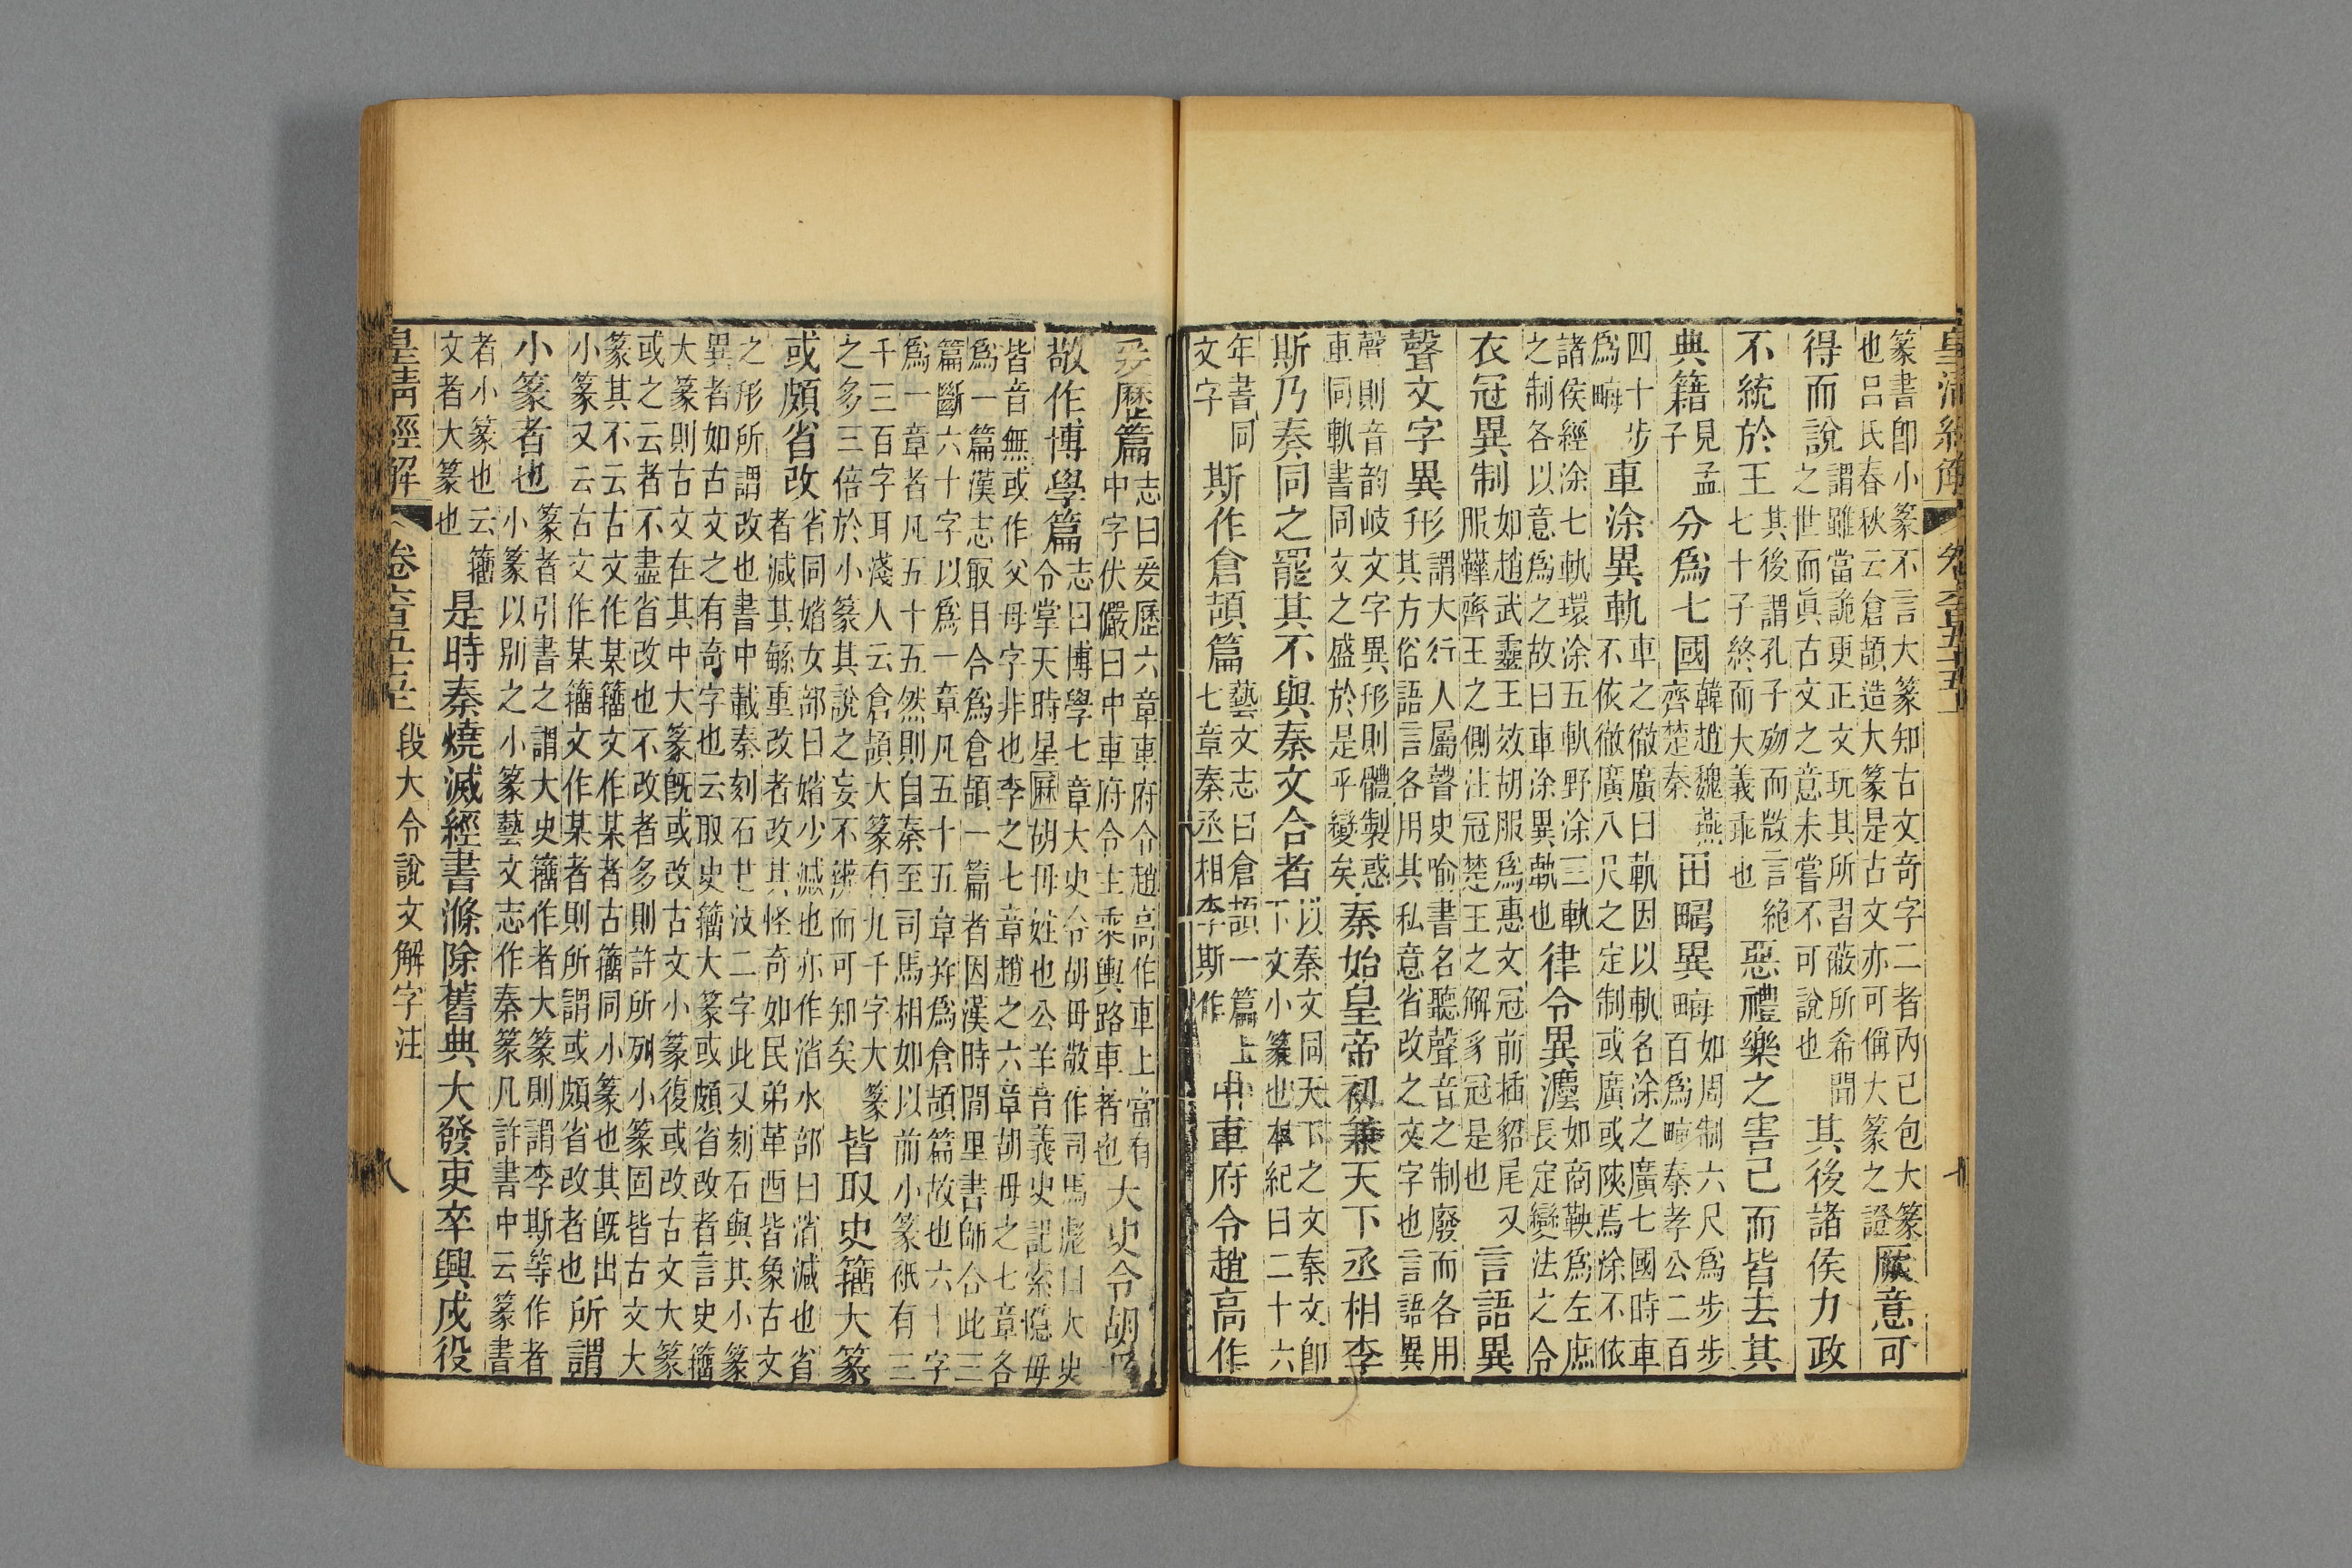 皇清經解 卷六百五十五
篆書卽小篆不言大篆知古文奇字二者內已包大篆
也呂氏春秋云倉頡造大篆是古文亦可偁大篆之證
厥意可
得而說
謂雖當詭更正文玩其所習蔽所希聞
之世而眞古文之意未嘗不可說也
其後諸侯力政
不統於王
其後謂孔子歿而微言絶
七十子終而大義乖也
惡禮樂之害己而皆去其
典籍
見孟
子
分爲七國
韓趙魏燕
齊楚秦
田疇異畮
如周制六尺爲步步
百爲畮秦孝公二百
四十步
爲畮
車涂異軌
車之徹廣曰軌因以軌名涂之廣七國時車
不依徹廣八尺之定制或廣或陝焉涂不依
諸侯經涂七軌環涂五軌野涂三軌
之制各以意爲之故曰車涂異軌也
律令異灋
如商鞅爲左庶
長定變法之令
衣冠異制
如趙武靈王效胡服爲惠文冠前插貂尾又
服鞾齊王之側注冠楚王之解豸冠是也
言語異
聲文字異形
謂大行人屬瞽史喻書名聽聲音之制廢而各用
其方俗語言各用其私意省改之文字也言語異
聲則音韵岐文字異形則體製惑
車同軌書同文之盛於是乎變矣
秦始皇帝初兼天下丞相李
斯乃奏同之罷其不與秦文合者
以秦文同天下之文秦文卽
下文小篆也本紀曰二十六
年書同
文字
斯作倉頡篇
藝文志曰倉頡一篇上
七章秦丞相李斯作
中車府令趙高作
爰厤篇
志曰爰歷六章車府令趙高作車上當有
中字伏儼曰中車府令主乘輿路車者也
大史令胡毋
敬作博學篇
志曰博學七章大史令胡毋敬作司馬彪曰大史
令掌天時星厤胡毋姓也公羊音義史記索隱毋
皆音無或作父母字非也李之七章趙之六章胡毋之七章各
爲一篇漢志取目合爲倉頡一篇者因漢時閭里書師合此三
篇斷六十字以爲一章凡五十五章幷爲倉頡篇故也六十字
爲一章者凡五十五然則自秦至司馬相如以前小篆祇有三
千三百字耳淺人云倉頡大篆有九千字大篆
之多三倍於小篆其說之妄不辨而可知矣
皆取史籒大篆
或頗省改
省同媘女部曰媘少減也亦作渻水部曰渻減也省
者減其緐重改者改其怪奇如民弟革酉皆象古文
之形所謂改也書中載秦刻石丗汥二字此又刻石與其小篆
異者如古文之有奇字也云取史籒大篆或頗省改者言史籒
大篆則古文在其中大篆旣或改古文小篆復或改古文大篆
或之云者不盡省改也不改者多則許所列小篆固皆古文大
篆其不云古文作某籒文作某者古籒同小篆也其旣出
小篆又云古文作某籒文作某者則所謂或頗省改者也
所謂
小篆者也
篆者引書之謂大史籒作者大篆則謂李斯等作者
小篆以別之小篆藝文志作秦篆凡許書中云篆書
者小篆也云籒
文者大篆也
是時秦燒滅經書滌除舊典大發吏卒興戍役
皇清經解 卷六百五十五 段大令說文解字注 八